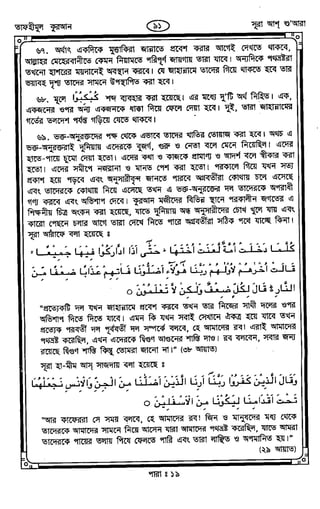 তাফহীমুল কুরআন ৯১ সূরা আশ্ শু'আরা
৬৭. অর্থাৎ একদিকে মুত্তাকিরা জান্নাতে প্রবেশ করার আগেই দেখতে থাকবে,
আল্লাহর মেহেরবানীতে কেমন নিয়ামতে পরিপূর্ণ জায়গায় তারা যাবে। অন্যদিকে পথভ্রষ্টরা
তখনো হাশরের ময়দানেই অবস্থান করবে। যে জাহান্নামে তাদের গিয়ে থাকতে হবে তার
ভয়াবহ দৃশ্য তাদের সামনে উপস্থাপিত করা হবে।
৬৮. মূলে كُبْكِبُوا শব্দ ব্যবহার করা হয়েছে। এর মধ্যে দু'টি অর্থ নিহিত। এক,
একজনের ওপর অন্য একজনকে ধাক্কা দিয়ে ফেলে দেয়া হবে। দুই, তারা জাহান্নামের
গর্তের তলদেশ পর্যন্ত গড়িয়ে যেতে থাকবে।
৬৯. ভক্ত-অনুরক্তদের পক্ষ থেকে এভাবে তাদের খাতির তোয়াজ করা হবে। অথচ এ
ভক্ত-অনুরক্তরাই দুনিয়ায় এদেরকে বুজর্গ, গুরু ও নেতা বলে মেনে নিয়েছিল। এদের
হাতে-পায়ে চুমো দেয়া হতো। এদের কথা ও কাজকে প্রামাণ্য ও আদর্শ বলে স্বীকার করা
হতো। এদের সামনে নজরানা ও মানত পেশ করা হতো। পরকালে গিয়ে যখন সত্য
প্রকাশ হয়ে পড়বে এবং অনুসারীবৃন্দ জানতে পারবে অগ্রবর্তীরা কোথায় চলে এসেছে
এবং তাদেরকে কোথায় নিয়ে এসেছে তখন এ ভক্ত-অনুরক্তের দল তাদেরকে অপরাধী
গণ্য করবে এবং অভিশাপ দেবে। কুরআন মজীদের বিভিন্ন স্থানে পরকালীন জগতের এ
শিক্ষনীয় চিত্র অংকন করা হয়েছে, যাতে দুনিয়ায় অন্ধ অনুসারীদের চোখ খুলে যায় এবং
কারো পেছনে চলার আগে তারা দেখে নিতে পারে অগ্রবর্তীরা সঠিক পথে যাচ্ছে কিনা।
সূরা আ'রাফে বলা হয়েছে ঃ
كُلَّمَا دَخَلَتْ أُمَّةٌ لَّعَنَتْ أُخْتَهَا ۖ حَتَّىٰ إِذَا ادَّارَكُوا فِيهَا جَمِيعًا ۙ
قَالَتْ أُخْرَاهُمْ لِأُولَاهُمْ رَبَّنَا هَٰؤُلَاءِ أَضَلُّونَا فَآتِهِمْ عَذَابًا ضِعْفًا مِّنَ
النَّارِ ۖ قَالَ لِكُلٍّ ضِعْفٌ وَلَٰكِن لَّا تَعْلَمُونَ ○
"প্রত্যেকটি দল যখন জাহান্নামে প্রবেশ করবে তখন তার নিজের সাথী দলের ওপর
অভিশাপ দিতে দিতে যাবে। এমন কি যখন সবাই সেখানে একত্র হয়ে যাবে তখন
প্রত্যেক পরবর্তী দল পূর্ববর্তী দল সম্পর্কে বলবে, হে আমাদের রব! এরাই আমাদের
পথভ্রষ্ট করেছিল, এখন এদেরকে দ্বিগুণ আগুনের শাস্তি দাও। রব বলবেন, সবার জন্য
রয়েছে দ্বিগুণ শাস্তি কিন্তু তোমরা জানো না।" (৩৮ আয়াত)
সূরা হা-মীম আস্ সাজদায় বলা হয়েছে ঃ
وَقَالَ الَّذِينَ كَفَرُوا رَبَّنَا أَرِنَا الَّذَيْنِ أَضَلَّانَا مِنَ الْجِنِّ وَالْإِنسِ نَجْعَلْهُمَا
تَحْتَ أَقْدَامِنَا لِيَكُونَا مِنَ الْأَسْفَلِينَ ○
"আর কাফেররা সে সময় বলবে, হে আমাদের রব! জিন ও মানুষদের মধ্য থেকে
তাদেরকে আমাদের সামনে নিয়ে আসেন যারা আমাদের পথভ্রষ্ট করেছিল, যাতে আমরা
তাদেরকে পায়ের তলায় পিষে ফেলতে পারি এবং তারা লাঞ্ছিত ও অপমানিত হয়।"
(২৯ আয়াত)
পারা ঃ ১৯